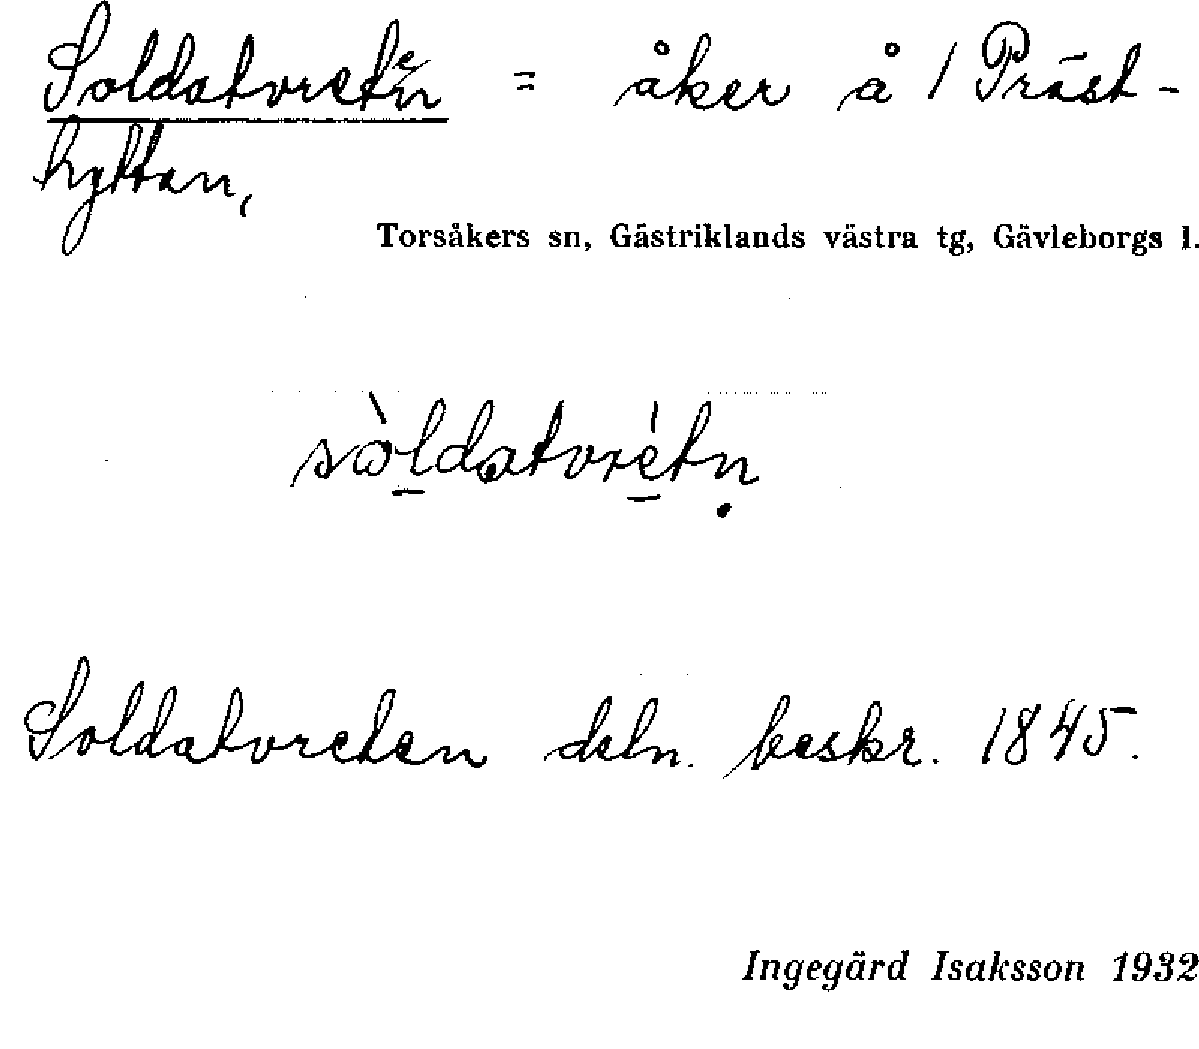 Soldatvreten = åker å / Präst-
hyttan,
Torsåkers sn, Gästriklands västra tg, Gävleborgs l.
sòldatvrétṇ
Soldatvreten dsln. beskr. 1845.
Ingegärd Isaksson 1932